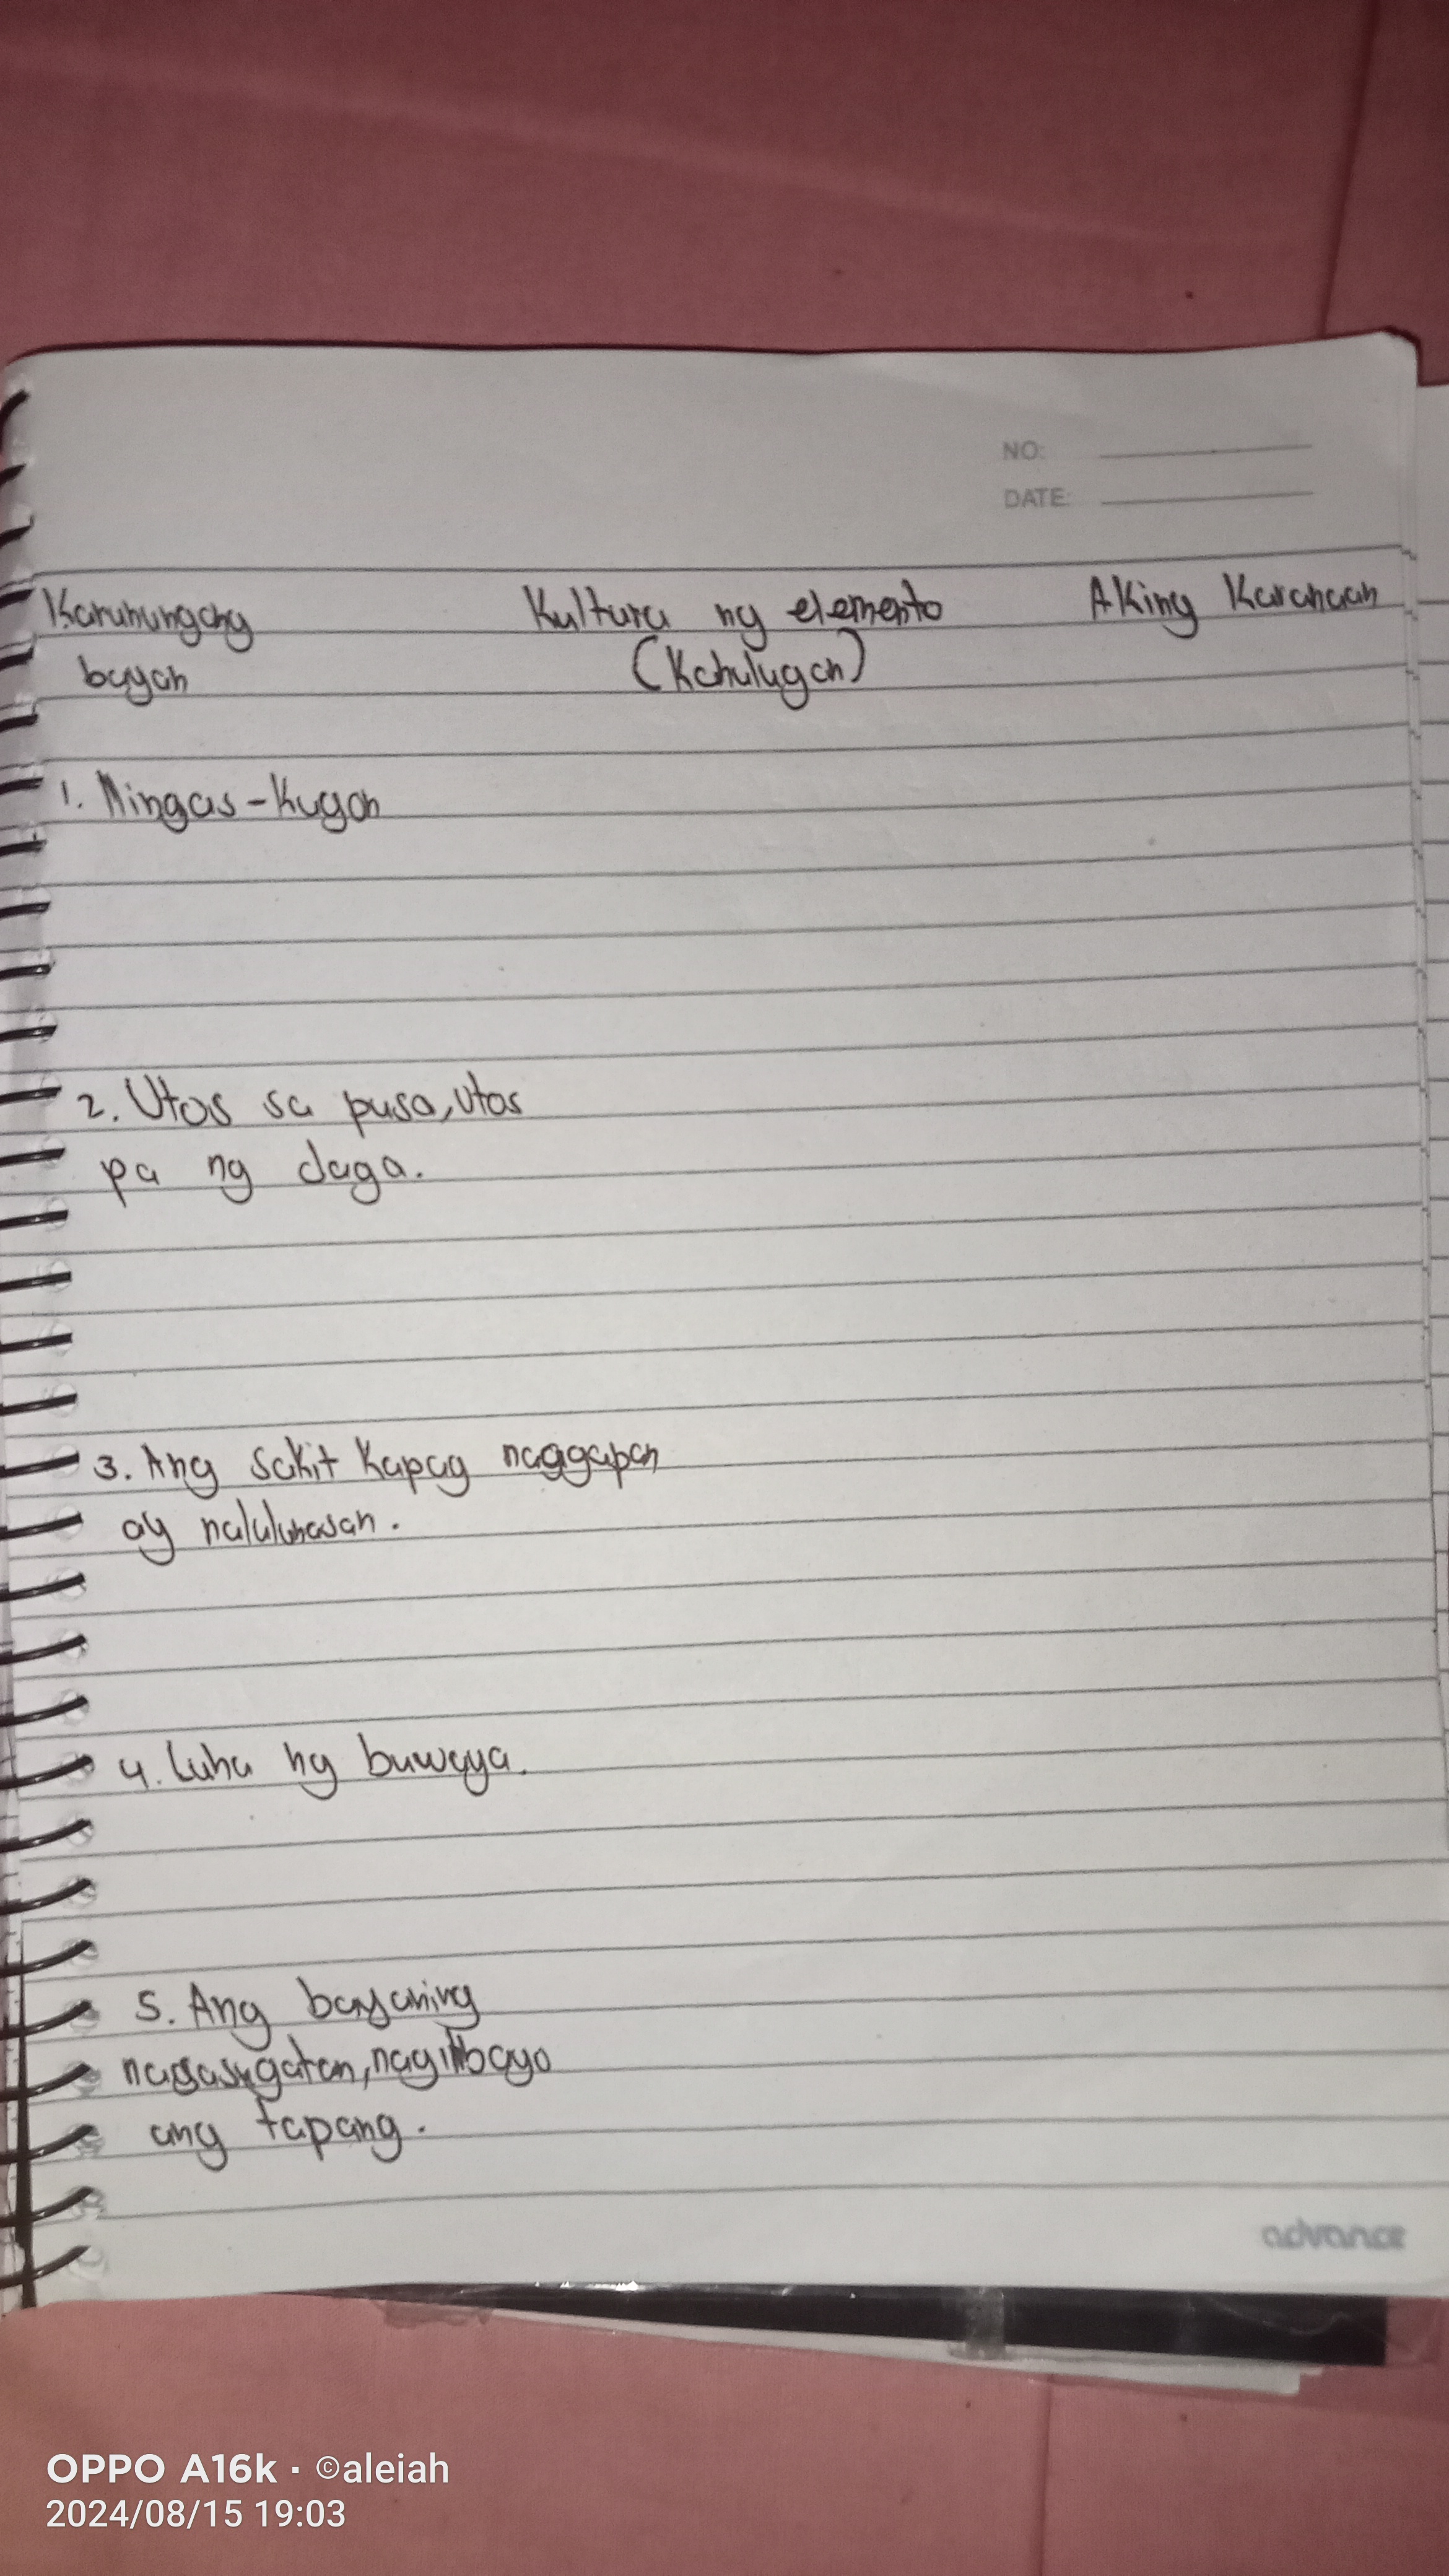 NO:
DATE:
Karunungang Kultura ng elemento Aking Karanaan
bayan (Kahulugan)
1. Ningas-Kugon
2. Utos sa pusa, utos
pa ng daga.
3. Ang sakit kapag naggapan
ay nalulunasan.
4. Luha ng buwaya.
5. Ang bayaning
nasasugatan, nag iibayo
ang tapang.
advance
OPPO A16k · ©aleiah
2024/08/15 19:03